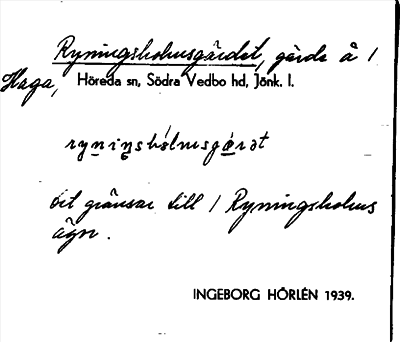 Ryningsholmsgärdet, gärde å 1
Haga, Höreda sn, Södra Vedbo hd, Jönk. l.
ryniŋshólmsgærdt
det gränsar till 1 Ryningsholms
ägor.
INGEBORG HÖRLÉN 1939.